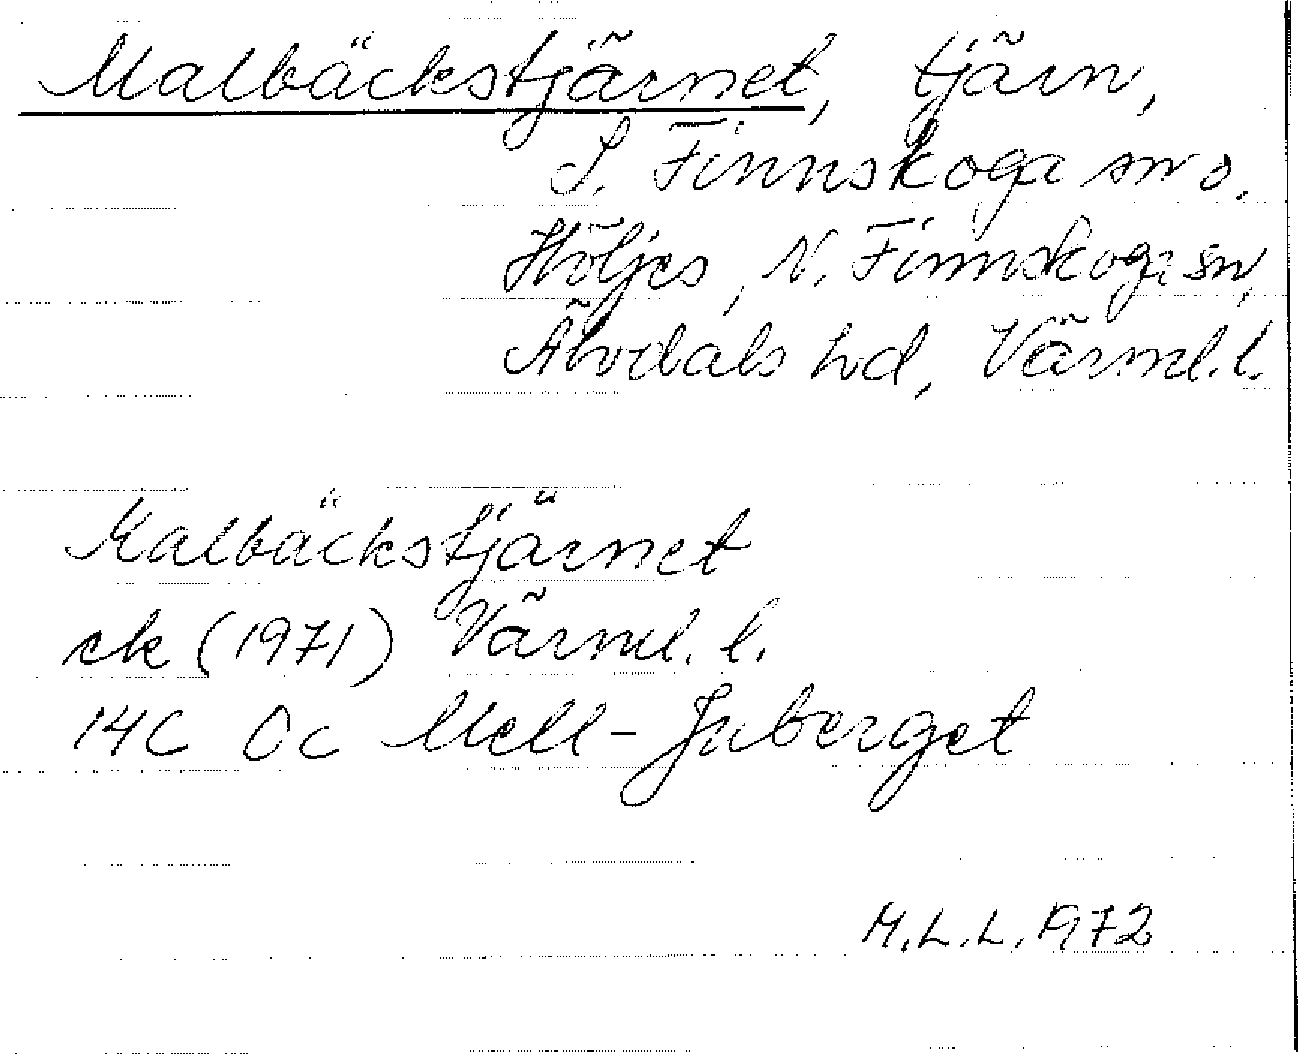 Malbäckstjärnet, tjärn,
S. Finnskoga sn o.
Höljes, N. Finnskoga sn,
Älvdals hd, Värml. l.
Malbäckstjärnet
ek (1971) Värml. l.
14C 0c Mell-Juberget
M.L.L. 1972